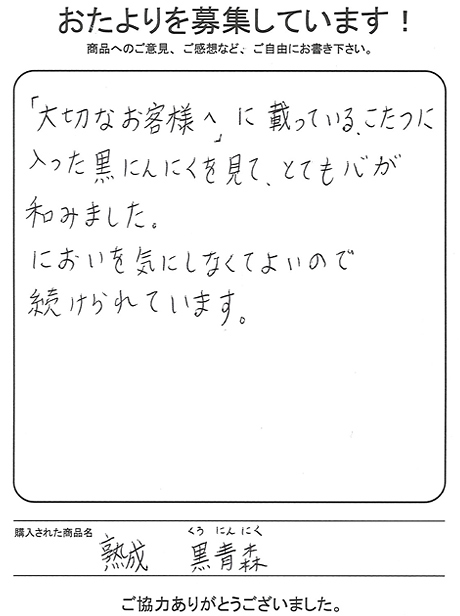 おたよりを募集しています！
商品へのご意見、ご感想など、ご自由にお書き下さい。
「大切なお客様へ」に載っている、こたつに
入った黒にんにくを見て、とても心が
和みました。
においを気にしなくてよいので
続けられています。
購入された商品名
くろ にん にく
熟成 黒青森
ご協力ありがとうございました。